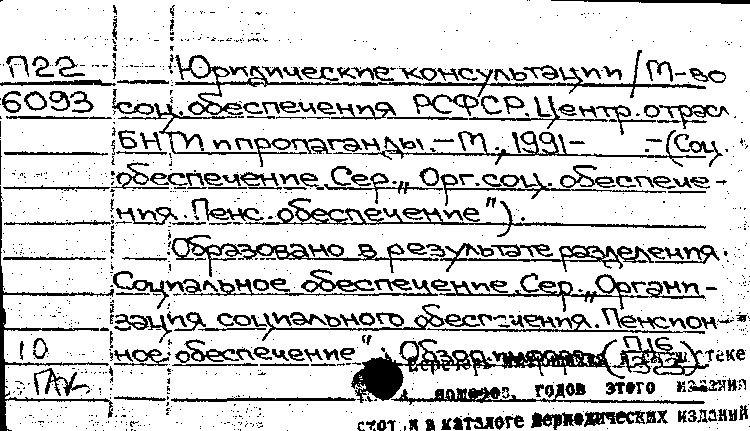 П22 Юридические консультации / М-во
6093 соц. обеспечения РСФСР. Центр. отрасл
БНТИ и пропаганды. - М., 1991- . - (Соц.
обеспечение. Сер. „Орг. соц. обеспече-
ния. Пенс. обеспечение").
Образовано в результате разделения.
Социальное обеспечение. Сер. „Органи-
зация социального обеспечения. Пенсион-
10 ное обеспечение": Обзор. информ. (П16
номеров, годов этого издания
и в каталоге периодических изданий